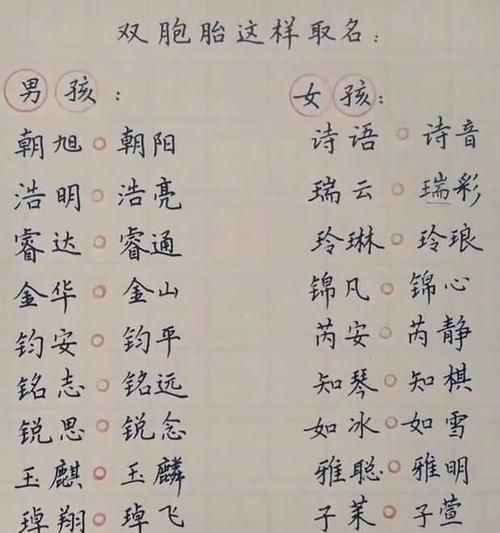 双胞胎这样取名：
男孩： 女孩：
朝旭。朝阳 诗语。诗音
浩明。浩亮 瑞云。瑞彩
睿达。睿通 玲琳。玲琅
金华。金山 锦凡。锦心
钧安。钧平 芮安。芮静
铭志。铭远 知琴。知棋
锐思。锐念 如冰。如雪
玉麒。玉麟 雅聪。雅明
琸翔。琸飞 子茉。子萱